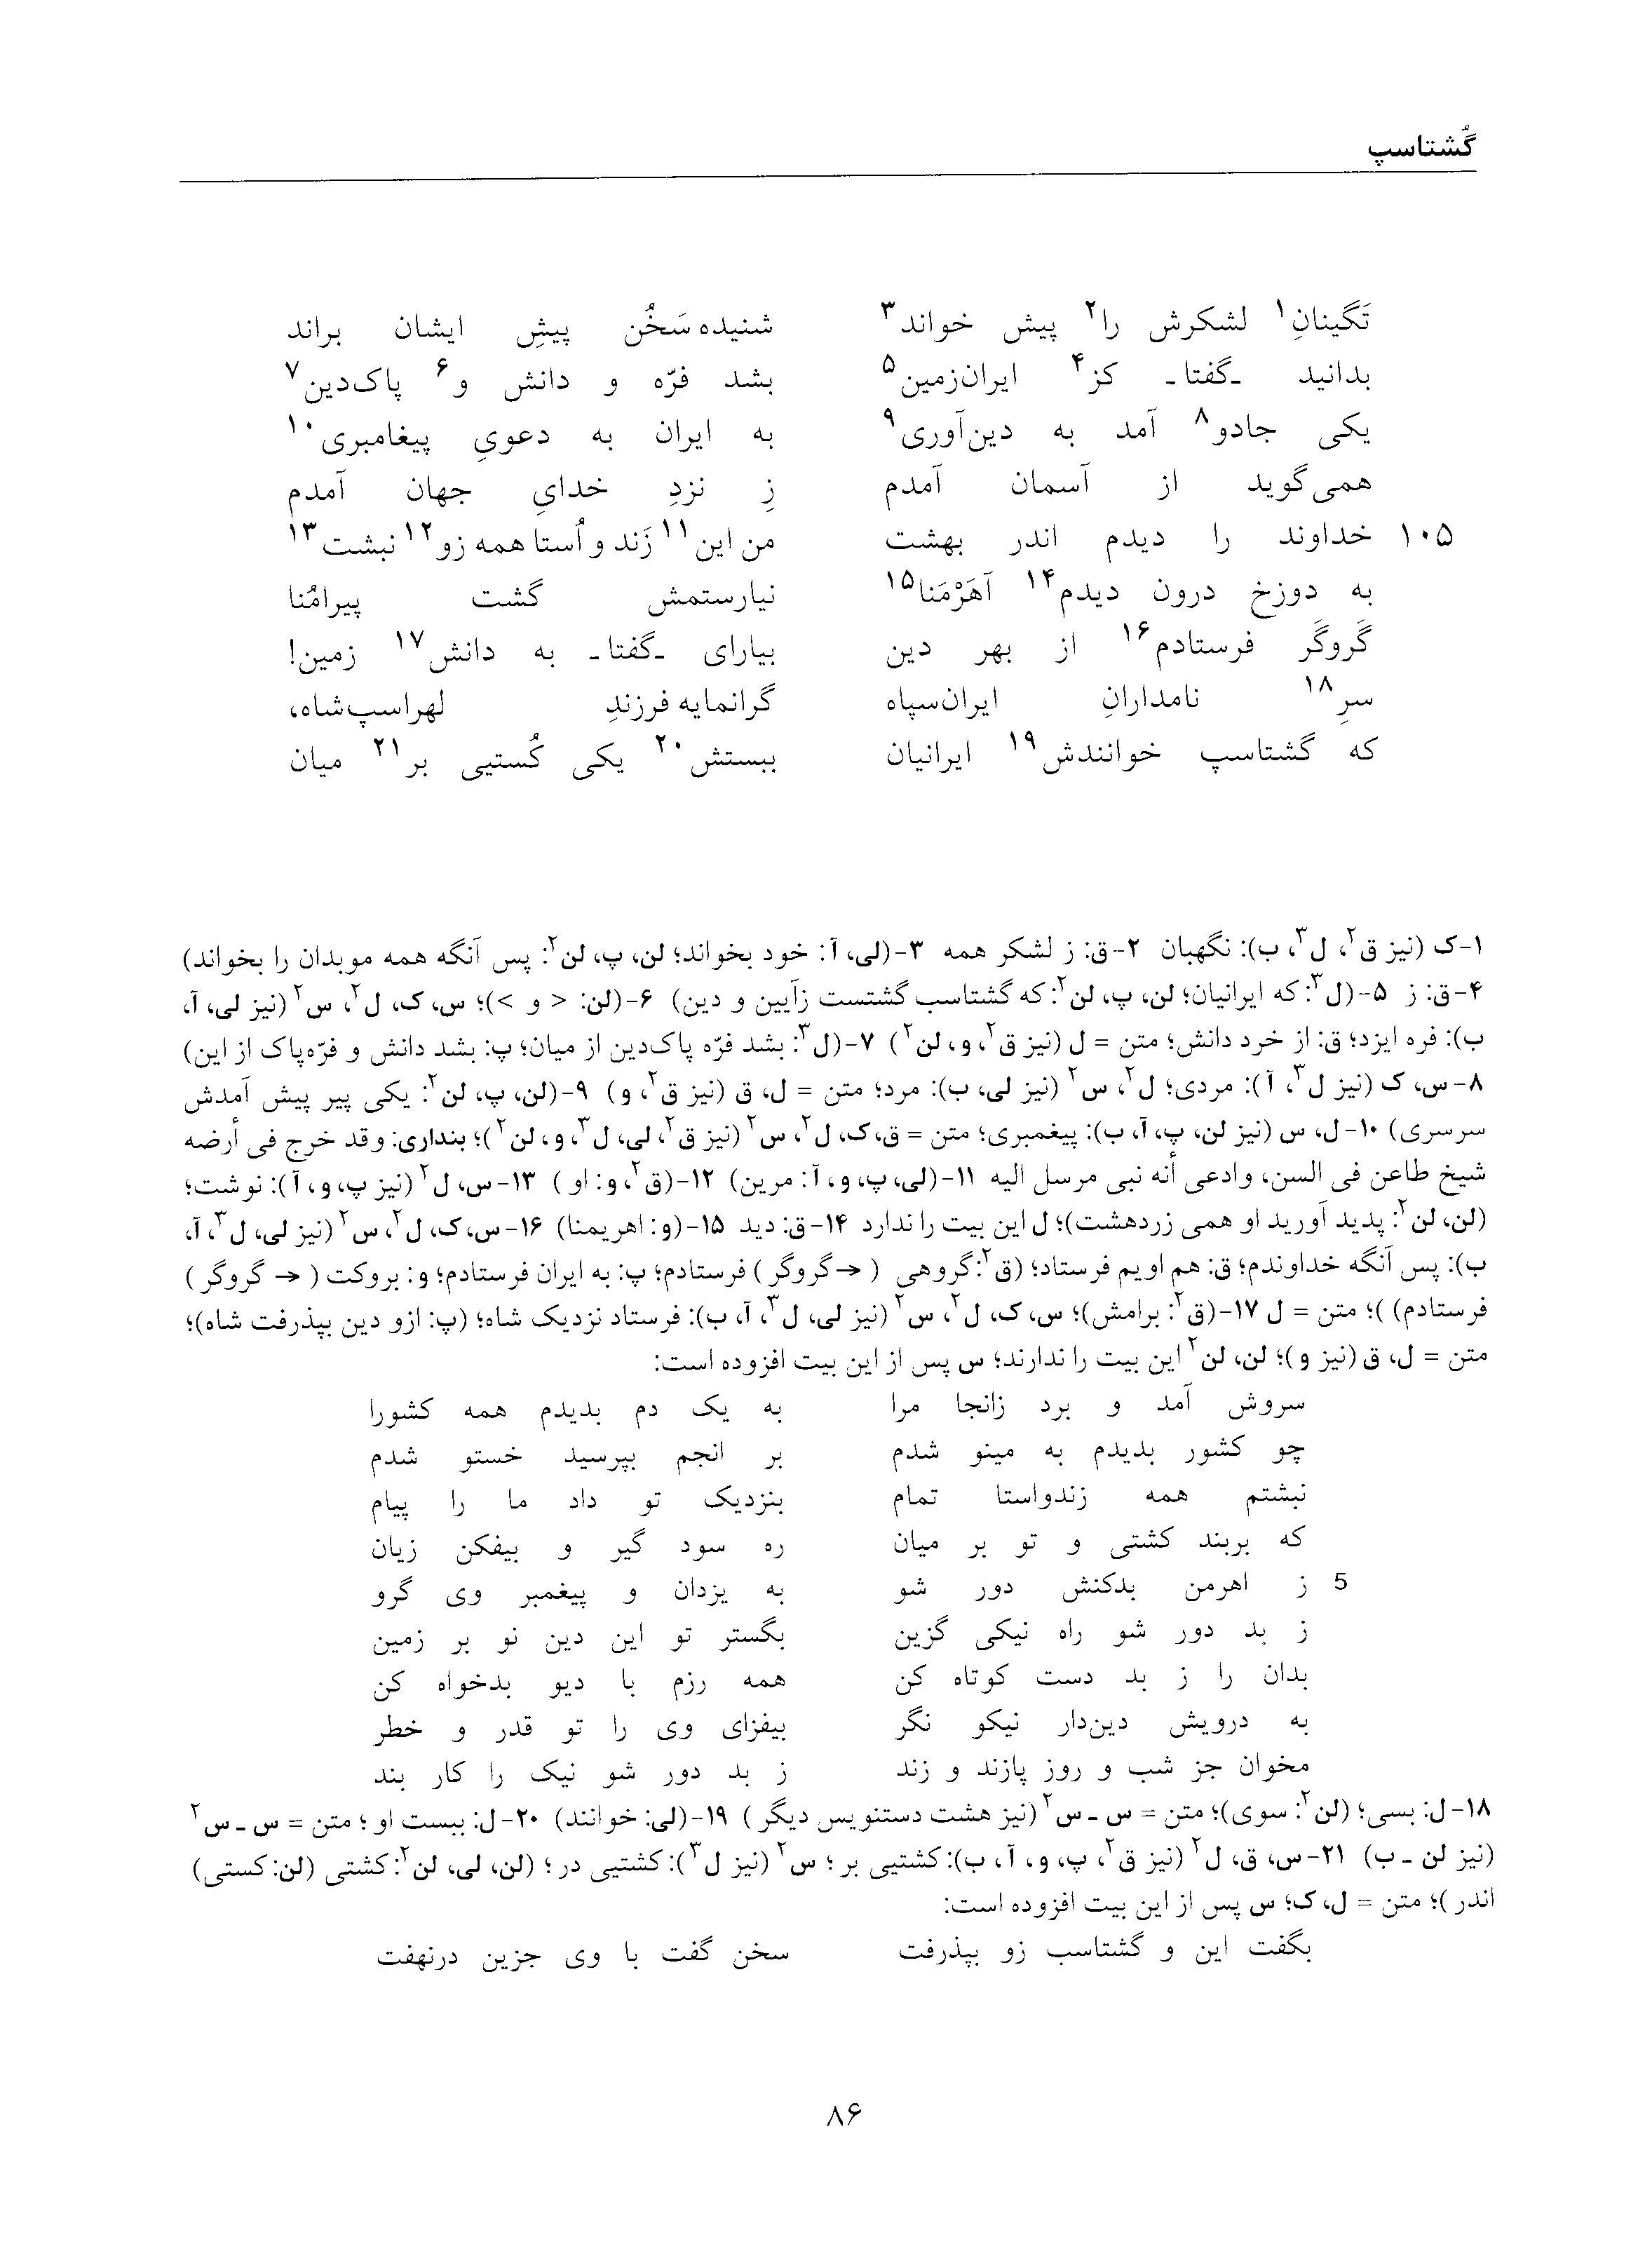 گُشتاسپ
تَگینانِ۱ لشکرش را۲ پیش خواند۳ شنیده سَخُن پیشِ ایشان براند
بدانید ـ‌گفتا‌ـ کز۴ ایران‌زمین۵ بشد فرّه و دانش و۶ پاک‌دین۷
یکی جادو۸ آمد به دین‌آوری۹ به ایران به دعویِ پیغامبری۱۰
همی‌گوید از آسمان آمدم زِ نزدِ خدایِ جهان آمدم
۱۰۵ خداوند را دیدم اندر بهشت من این۱۱ زَند و اُستا همه زو۱۲ نبشت۱۳
به دوزخ درون دیدم۱۴ آهَرْمَنا۱۵ نیارستمش گشت پیرامُنا
گَروگَر فرستادم۱۶ از بهر دین بیارای ـ‌گفتا‌ـ به دانش۱۷ زمین!
سرِ۱۸ نامدارانِ ایران‌سپاه گرانمایه فرزندِ لهراسپ‌شاه،
که گشتاسپ خوانندش۱۹ ایرانیان ببستش۲۰ یکی کُستیی بر۲۱ میان
۱-ک (نیز ق۲، ل۳، ب): نگهبان ۲-ق: ز لشکر همه ۳-(لی، آ: خود بخواند؛ لن، پ، لن۲: پس آنگه همه موبدان را بخواند)
۴-ق: ز ۵-(ل۳: که ایرانیان؛ لن، پ، لن۲: که گشتاسب گشتست زآیین و دین) ۶-(لن: < و >)؛ س، ک، ل۲، س۲ (نیز لی، آ،
ب): فره ایزد؛ ق: از خرد دانش؛ متن = ل (نیز ق۲، و، لن۲) ۷-(ل۳: بشد فرّه پاک‌دین از میان؛ پ: بشد دانش و فرّه‌پاک از این)
۸-س، ک (نیز ل۳، آ): مردی؛ ل۲، س۲ (نیز لی، ب): مرد؛ متن = ل، ق (نیز ق۲، و) ۹-(لن، پ، لن۲: یکی پیر پیش آمدش
سرسری) ۱۰-ل، س (نیز لن، پ، آ، ب): پیغمبری؛ متن = ق، ک، ل۲، س۲ (نیز ق۲، لی، ل۳، و، لن۲)؛ بنداری: وقد خرج فی أرضه
شیخ طاعن فی السن، وادعی أنه نبی مرسل الیه ۱۱-(لی، پ، و، آ: مرین) ۱۲-(ق۲، و: او) ۱۳-س، ل۲ (نیز پ، و، آ): نوشت؛
(لن، لن۲: پدید آورید او همی زردهشت)؛ ل این بیت را ندارد ۱۴-ق: دید ۱۵-(و: اهریمنا) ۱۶-س، ک، ل۲، س۲ (نیز لی، ل۳، آ،
ب): پس آنگه خداوندم؛ ق: هم اویم فرستاد؛ (ق۲: گروهی (→ گروگر) فرستادم؛ پ: به ایران فرستادم؛ و: بروکت (→ گروگر)
فرستادم) )؛ متن = ل ۱۷-(ق۲: برامش)؛ س، ک، ل۲، س۲ (نیز لی، ل۳، آ، ب): فرستاد نزدیک شاه؛ (پ: ازو دین بپذرفت شاه)؛
متن = ل، ق (نیز و)؛ لن، لن۲ این بیت را ندارند؛ س پس از این بیت افزوده است:
سروش آمد و برد زانجا مرا به یک دم بدیدم همه کشورا
چو کشور بدیدم به مینو شدم بر انجم بپرسید خستو شدم
نبشتم همه زندواستا تمام بنزدیک تو داد ما را پیام
که بربند کشتی و تو بر میان ره سود گیر و بیفکن زیان
5 ز اهرمن بدکنش دور شو به یزدان و پیغمبر وی گرو
ز بد دور شو راه نیکی گزین بگستر تو این دین نو بر زمین
بدان را ز بد دست کوتاه کن همه رزم با دیو بدخواه کن
به درویش دین‌دار نیکو نگر بیفزای وی را تو قدر و خطر
مخوان جز شب و روز پازند و زند ز بد دور شو نیک را کار بند
۱۸-ل: بسی؛ (لن۲: سوی)؛ متن = س ـ س۲ (نیز هشت دستنویس دیگر) ۱۹-(لی: خوانند) ۲۰-ل: ببست او؛ متن = س ـ س۲
(نیز لن ـ ب) ۲۱-س، ق، ل۲ (نیز ق۲، پ، و، آ، ب): کشتیی بر؛ س۲ (نیز ل۳): کشتیی در؛ (لن، لی، لن۲: کشتی (لن: کستی)
اندر)؛ متن = ل، ک؛ س پس از این بیت افزوده است:
بگفت این و گشتاسب زو بپذرفت سخن گفت با وی جزین درنهفت
۸۶